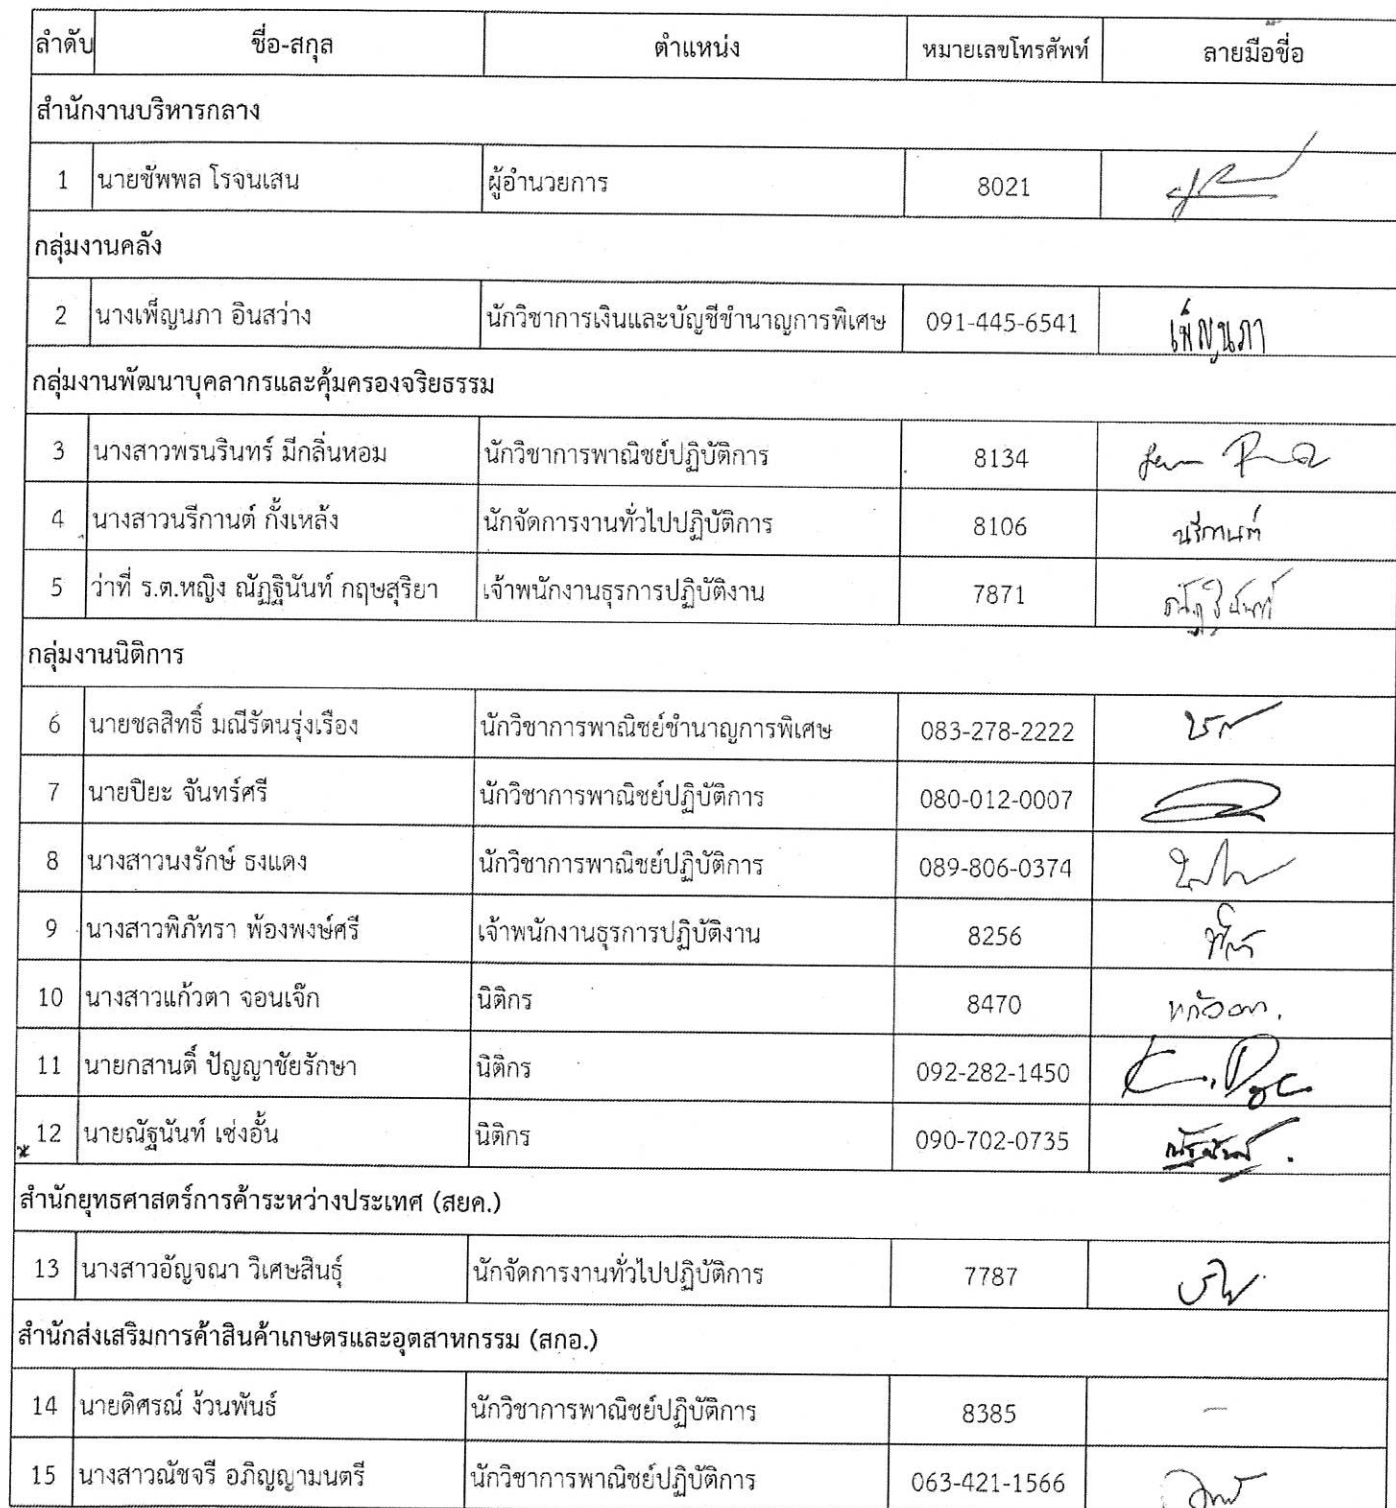 ลำดับ ชื่อ-สกุล ตำแหน่ง หมายเลขโทรศัพท์ ลายมือชื่อ
สำนักงานบริหารกลาง
1 นายชัพพล โรจนเสน ผู้อำนวยการ 8021
กลุ่มงานคลัง
2 นางเพ็ญนภา อินสว่าง นักวิชาการเงินและบัญชีชำนาญการพิเศษ 091-445-6541 เพ็ญนภา
กลุ่มงานพัฒนาบุคลากรและคุ้มครองจริยธรรม
3 นางสาวพรนรินทร์ มีกลิ่นหอม นักวิชาการพาณิชย์ปฏิบัติการ 8134
4 นางสาวนรีกานต์ กั้งเหล้ง นักจัดการงานทั่วไปปฏิบัติการ 8106 นรีกานต์
5 ว่าที่ ร.ต.หญิง ณัฏฐินันท์ กฤษสุริยา เจ้าพนักงานธุรการปฏิบัติงาน 7871 ณัฏฐินันท์
กลุ่มงานนิติการ
6 นายชลสิทธิ์ มณีรัตนรุ่งเรือง นักวิชาการพาณิชย์ชำนาญการพิเศษ 083-278-2222
7 นายปิยะ จันทร์ศรี นักวิชาการพาณิชย์ปฏิบัติการ 080-012-0007
8 นางสาวนงรักษ์ ธงแดง นักวิชาการพาณิชย์ปฏิบัติการ 089-806-0374
9 นางสาวพิภัทรา พ้องพงษ์ศรี เจ้าพนักงานธุรการปฏิบัติงาน 8256
10 นางสาวแก้วตา จอนเจ๊ก นิติกร 8470 แก้วตา.
11 นายกสานติ์ ปัญญาชัยรักษา นิติกร 092-282-1450
12 นายณัฐนันท์ เซ่งอั้น นิติกร 090-702-0735 ณัฐนันท์.
สำนักยุทธศาสตร์การค้าระหว่างประเทศ (สยค.)
13 นางสาวอัญจณา วิเศษสินธุ์ นักจัดการงานทั่วไปปฏิบัติการ 7787
สำนักส่งเสริมการค้าสินค้าเกษตรและอุตสาหกรรม (สกอ.)
14 นายดิศรณ์ ง้วนพันธ์ นักวิชาการพาณิชย์ปฏิบัติการ 8385 –
15 นางสาวณัชจรี อภิญญามนตรี นักวิชาการพาณิชย์ปฏิบัติการ 063-421-1566